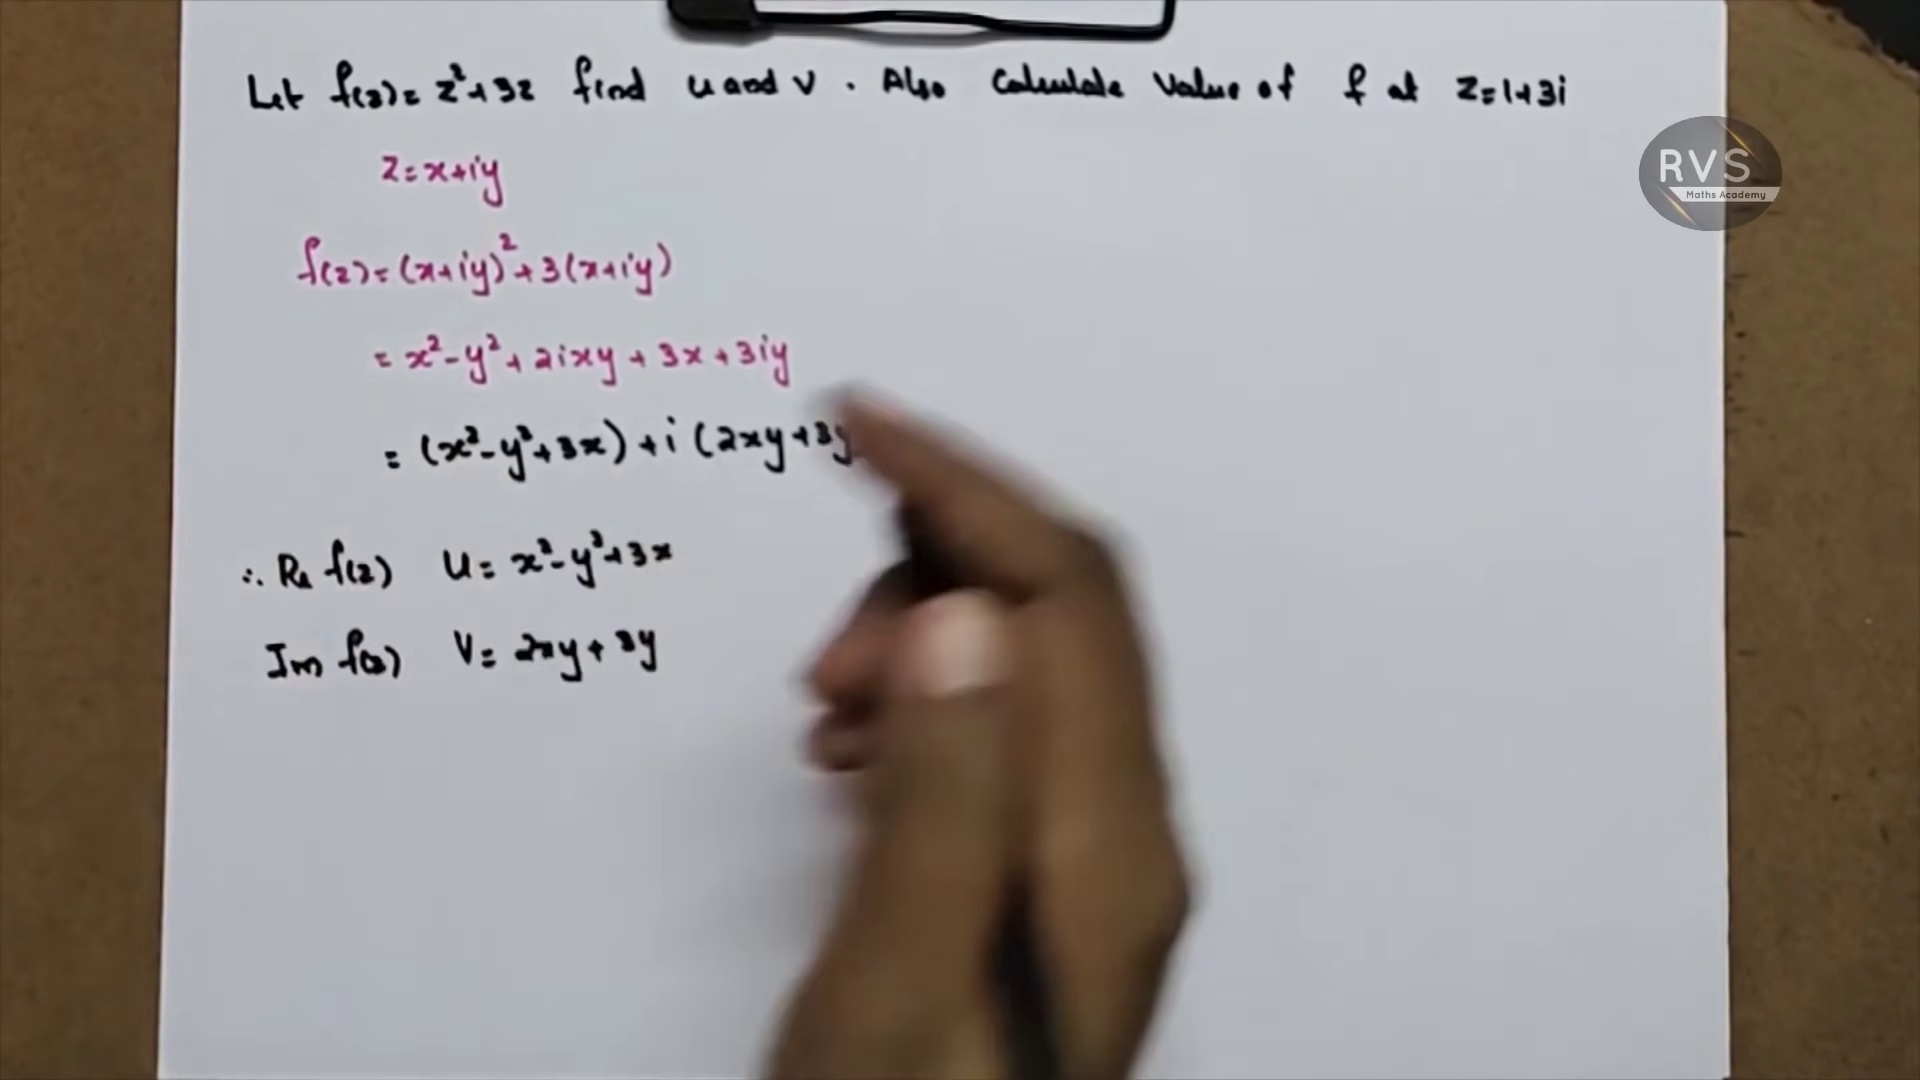 Let f(z) = z² + 3z find u and v. Also Calculate Value of f at z = 1 + 3i
RVS
Maths Academy
z = x + iy
f(z) = (x + iy)² + 3(x + iy)
= x² - y² + 2ixy + 3x + 3iy
= (x² - y² + 3x) + i (2xy + 3y
∴ Re f(z) u = x² - y² + 3x
Im f(z) V = 2xy + 3y